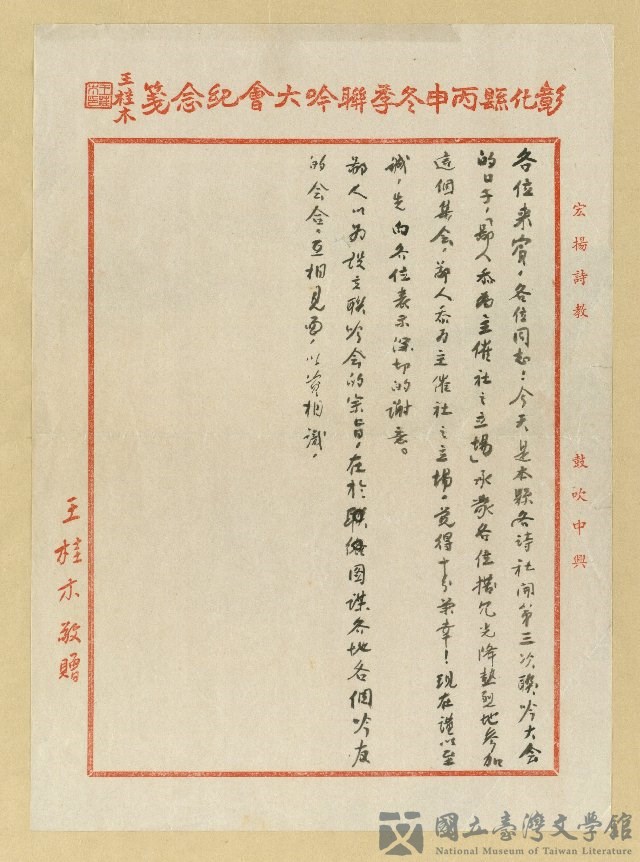 彰化縣丙申冬季聯吟大會紀念箋
王桂木
宏揚詩教
鼓吹中興
各位来賓，各位同志：今天是本縣各詩社開第三次聯吟大会
的日子，「鄙人忝为主催社之立場」承蒙各位撥冗光降熱烈地参加
這個集会，鄙人忝为主催社之立場，覚得十分荣幸！現在謹以至
誠，先向各位表示深切的謝意。
鄙人以为設立聯吟会的宗旨，在於聯 圖謀各地各個吟友
的会合，互相見面，以 相識，
王桂木敬贈
國立臺灣文學館
National Museum of Taiwan Literature